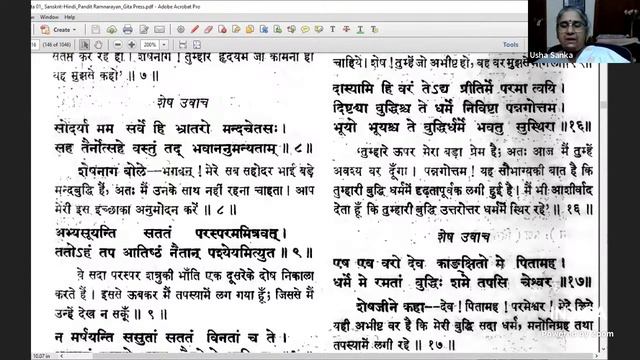 ta 01_ Sanskrit-Hindi_Pandit Ramnarayan_Gita Press.pdf - Adobe Acrobat Pro
Window Help
Create
16 (146 of 1046)
200%
Tools
संतप्त कर रहे हो। शेषनाग! तुम्हारे हृदयमें जो कामना हो
वह मुझसे कहो' ॥ ७ ॥
शेष उवाच
सोदर्या मम सर्वे हि भ्रातरो मन्दचेतसः।
सह तैर्नोत्सहे वस्तुं तद् भवाननुमन्यताम् ॥ ८ ॥
शेषनाग बोले— भगवन्! मेरे सब सहोदर भाई बड़े
मन्दबुद्धि हैं, अतः मैं उनके साथ नहीं रहना चाहता। आप
मेरी इस इच्छाका अनुमोदन करें ॥ ८ ॥
अभ्यसूयन्ति सततं परस्परममित्रवत्।
ततोऽहं तप आतिष्ठं नैतान् पश्येयमित्युत ॥ ९ ॥
वे सदा परस्पर शत्रुकी भाँति एक दूसरेके दोष निकाला
करते हैं। इससे ऊबकर मैं तपस्यामें लग गया हूँ; जिससे मैं
उन्हें देख न सकूँ ॥ ९ ॥
न मर्षयन्ति ससुतां सततं विनतां च ते।
10.07 in
चाहिये। शेष! तुम्हें जो अभीष्ट हो, वह वर मुझसे
दास्यामि हि वरं तेऽद्य प्रीतिर्मे परमा त्वयि।
दिष्ट्या बुद्धिश्च ते धर्मे निविष्टा पन्नगोत्तम।
भूयो भूयश्च ते बुद्धिर्धर्मे भवतु सुस्थिरा ॥१६॥
'तुम्हारे ऊपर मेरा बड़ा प्रेम है; अतः आज मैं तुम्हें
अवश्य वर दूँगा। पन्नगोत्तम! यह सौभाग्यकी बात है कि
तुम्हारी बुद्धि धर्ममें दृढ़तापूर्वक लगी हुई है। मैं भी आशीर्वाद
देता हूँ कि तुम्हारी बुद्धि उत्तरोत्तर धर्ममें स्थिर रहे' ॥ १६ ॥
शेष उवाच
एष एव वरो देव काङ्क्षितो मे पितामह।
धर्मे मे रमतां बुद्धिः शमे तपसि चेश्वर ॥१७॥
शेषजीने कहा— देव! पितामह! परमेश्वर! मेरे लिये
यही अभीष्ट वर है कि मेरी बुद्धि सदा धर्म, मनोनिग्रह तथा
तपस्यामें लगी रहे ॥ १७ ॥
Usha Sanka